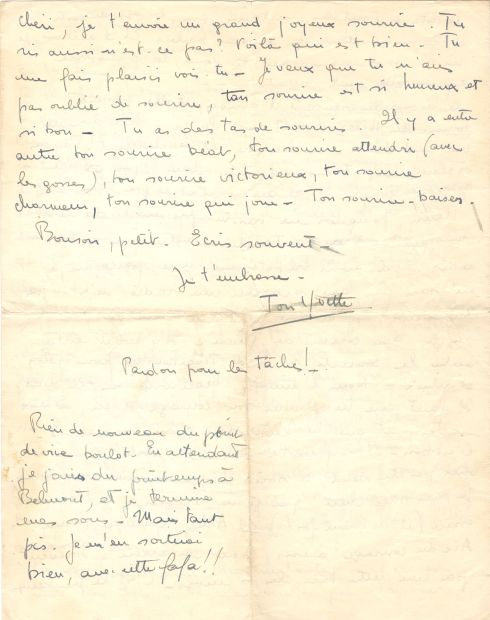 Chéri, je t'envoie un grand joyeux sourire. Tu
ris aussi n'est-ce pas? Voilà qui est bien - Tu
me fais plaisir vois-tu - Je veux que tu n'aies
pas oublié de sourire, ton sourire est si heureux et
si bon - Tu as des tas de sourires. Il y a entre
autre ton sourire béat, ton sourire attendri (avec
les gosses), ton sourire victorieux, ton sourire
charmeur, ton sourire qui joue - Ton sourire-baiser.
Bonsoir, petit. Ecris souvent -
Je t'embrasse -
Ton Yvette
Pardon pour les tâches! -
Rien de nouveau du point
de vue boulot. En attendant
je jouis du printemps à
Belmont, et je termine
mes sous - Mais tant
pis. Je m'en sortirai
bien, avec cette !!